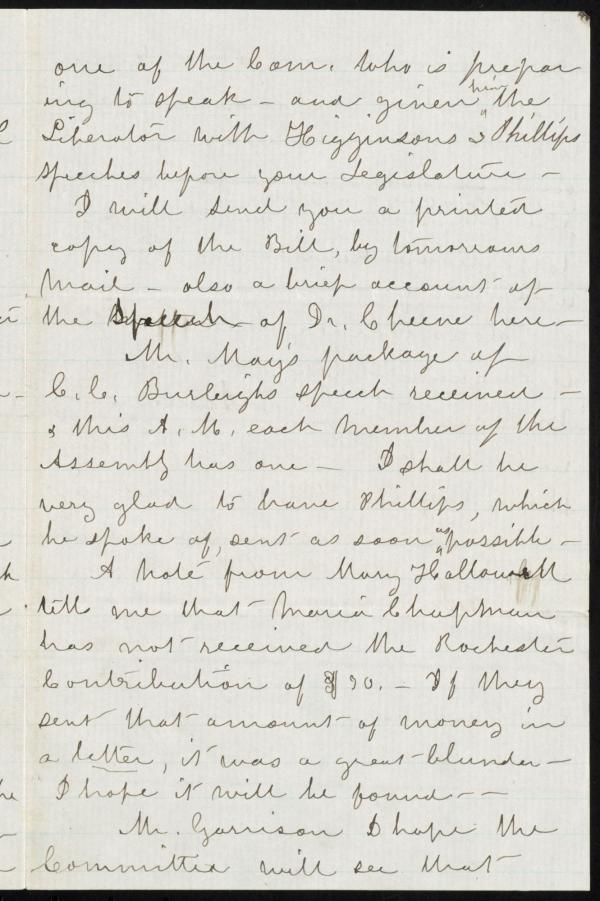 one of the Com. who is prepar
ing to speak - and given him the
Liberator with Higginsons & Phillips
speeches before your Legislature -
I will send you a printed
copy of the Bill, by tomorrows
mail - also a brief account of
the Speech of Dr. Cheever here -
Mr. May's package of
C. C. Burleighs speech received -
& this A. M. each member of the
Assembly has one - I shall be
very glad to have Phillips, which
he spoke of, sent as soon as possible -
A note from Mary Hallowell
tells me that Maria Chapman
has not received the Rochester
Contribution of $90. - If they
sent that amount of money in
a letter, it was a great blunder -
I hope it will be found - -
Mr. Garrison I hope the
Committee will see that